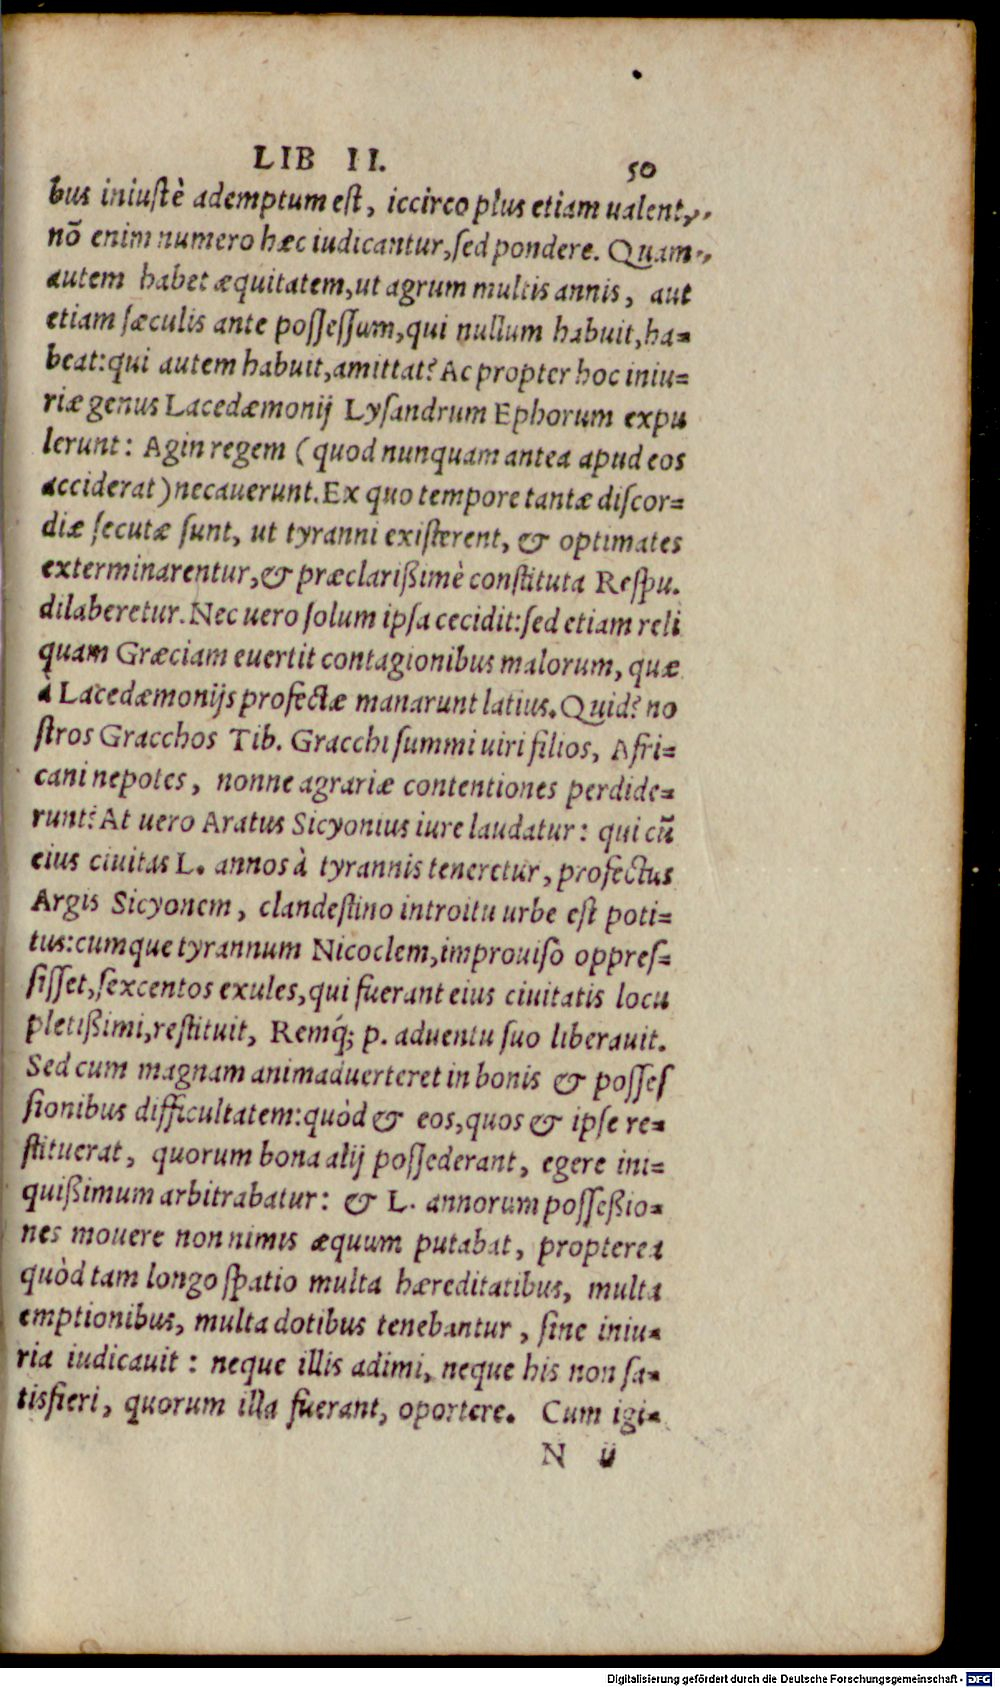 LIB II. 50
bus iniustè ademptum est, iccirco plus etiam ualent,
nō enim numero hæc iudicantur, sed pondere. Quam
autem habet æquitatem, ut agrum multis annis, aut
etiam sæculis ante possessum, qui nullum habuit, ha=
beat: qui autem habuit, amittat? Ac propter hoc iniu=
riæ genus Lacedæmonij Lysandrum Ephorum expu
lerunt: Agin regem (quod nunquam antea apud eos
acciderat) necauerunt. Ex quo tempore tantæ discor=
diæ secutæ sunt, ut tyranni existerent, & optimates
exterminarentur, & præclarißimè constituta Respu.
dilaberetur. Nec uero solum ipsa cecidit: sed etiam reli
quam Græciam euertit contagionibus malorum, quæ
à Lacedæmonijs profectæ manarunt latius. Quid? no
stros Gracchos Tib. Gracchi summi uiri filios, Afri=
cani nepotes, nonne agrariæ contentiones perdide=
runt? At uero Aratus Sicyonius iure laudatur: qui cū
eius ciuitas L. annos à tyrannis teneretur, profectus
Argis Sicyonem, clandestino introitu urbe est poti=
tus: cumque tyrannum Nicoclem, improuiso oppres=
sisset, sexcentos exules, qui fuerant eius ciuitatis locu
pletißimi, restituit, Remq́; p. aduentu suo liberauit.
Sed cum magnam animaduerteret in bonis & posses
sionibus difficultatem: quòd & eos, quos & ipse re=
stituerat, quorum bona alij possederant, egere ini=
quißimum arbitrabatur: & L. annorum posseßio=
nes mouere non nimis æquum putabat, propterea
quòd tam longo spatio multa hæreditatibus, multa
emptionibus, multa dotibus tenebantur, sine iniu=
ria iudicauit: neque illis adimi, neque his non sa=
tisfieri, quorum illa fuerant, oportere. Cum igi=
N ij
Digitalisierung gefördert durch die Deutsche Forschungsgemeinschaft - DFG